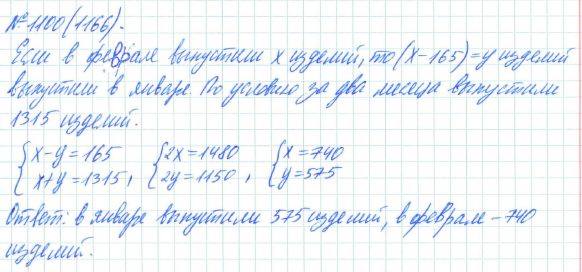 №1100(1166).
Если в феврале выпустили x изделий, то (x-165)=y изделий
выпустили в январе. По условию за два месяца выпустили
1315 изделий.
{x-y=165 {2x=1480 {x=740
x+y=1315, 2y=1150, y=575
Ответ: в январе выпустили 575 изделий, в феврале - 740
изделий.